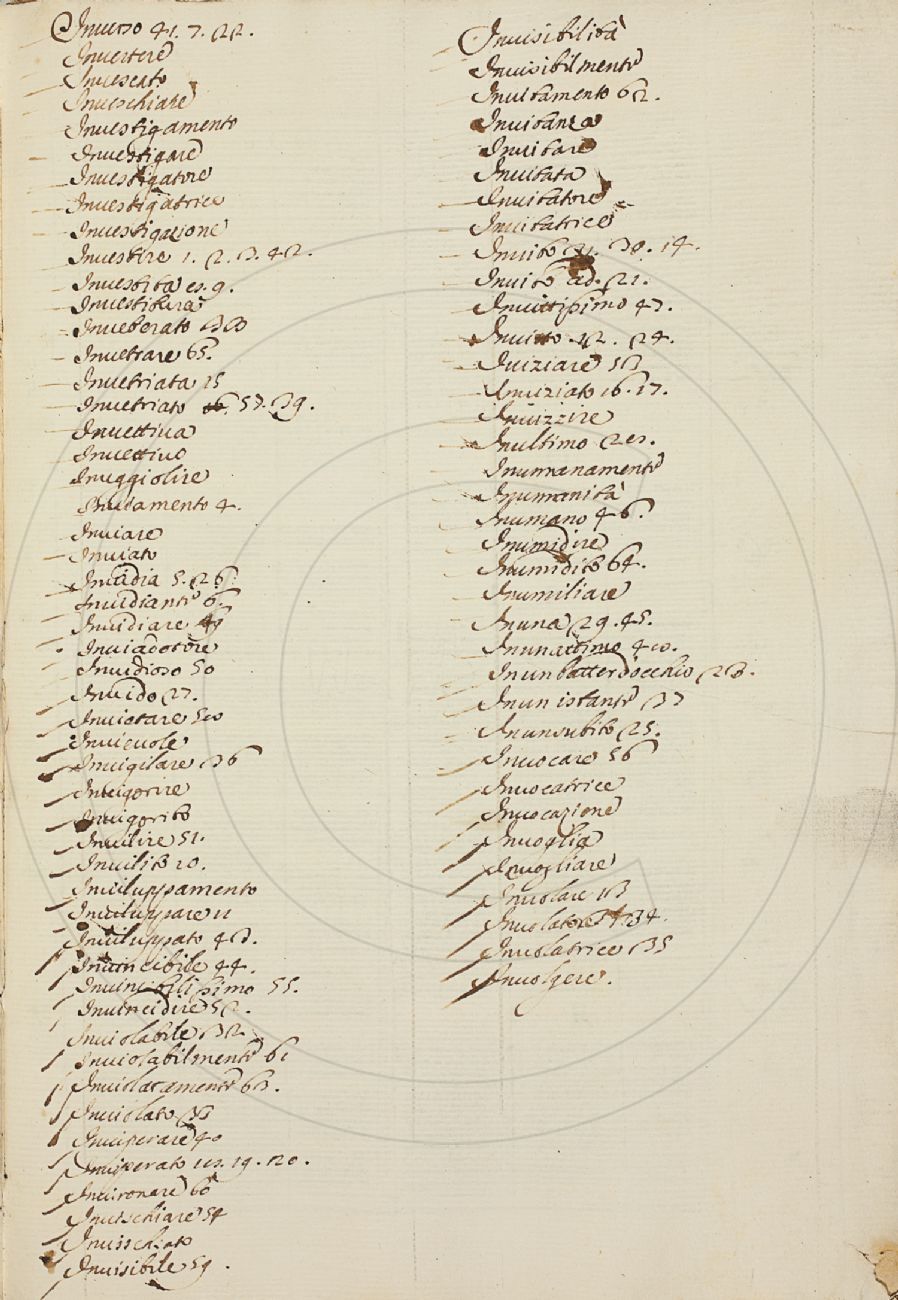 Inuerso 41. 7. 22.
Inuertere
Inuescato
Inueschiare
Inuestigamento
Inuestigare
Inuestigatore
Inuestigatrice
Inuestigazione
Inuestire 1. 2. 3. 42.
Inuestita es. 9.
Inuestitura
Inueterato 33
Inuetrare 65.
Inuetriata 15
Inuetriato 57. 39.
Inuettiua
Inuettiuo
Inueggiolire
Inuiamento 4.
Inuiare
Inuiato
Inuidia 5. 26.
Inuidiante 6.
Inuidiare
Inuiadotore
Inuidioso 50
Inuido 27.
Inuietare
Inuieuole
Inuigilare 36
Inuigorire
Inuigorito
Inuilire 51.
Inuilito 10.
Inuiluppamento
Inuiluppare 11
Inuiluppato 43.
Inuincibile 44.
Inuincibilissimo 55.
Inuincidire 52.
Inuiolabile 32
Inuiolabilmente 61
Inuiolatamente 63.
Inuiolato
Inuiperare 40
Inuiperato 19. 20.
Inuironare 60
Inuischiare 54
Inuischiato
Inuisibile 59.
Inuisibilità
Inuisibilmente
Inuitamento 62.
Inuitanza
Inuitare
Inuitata
Inuitatore
Inuitatrice
Inuito 31. 30. 14.
Inuito ad. 21.
Inuittissimo 47.
Inuitto 12. 24.
Inuiziare 53
Inuiziato 16. 17.
Inuizzire
Inultimo
Inumanamente
Inumanità
Inumano 46.
Inumidire
Inumidito 64.
Inumiliare
Inuna 29. 45.
Inunattimo
Inunbatterdocchio 23.
Inunistante 37
Inunsubito 25.
Inuocare 56
Inuocatrice
Inuocazione
Inuoglia
Inuogliare
Inuolare 13
Inuolatore 34.
Inuolatrice 35
Inuolgere.